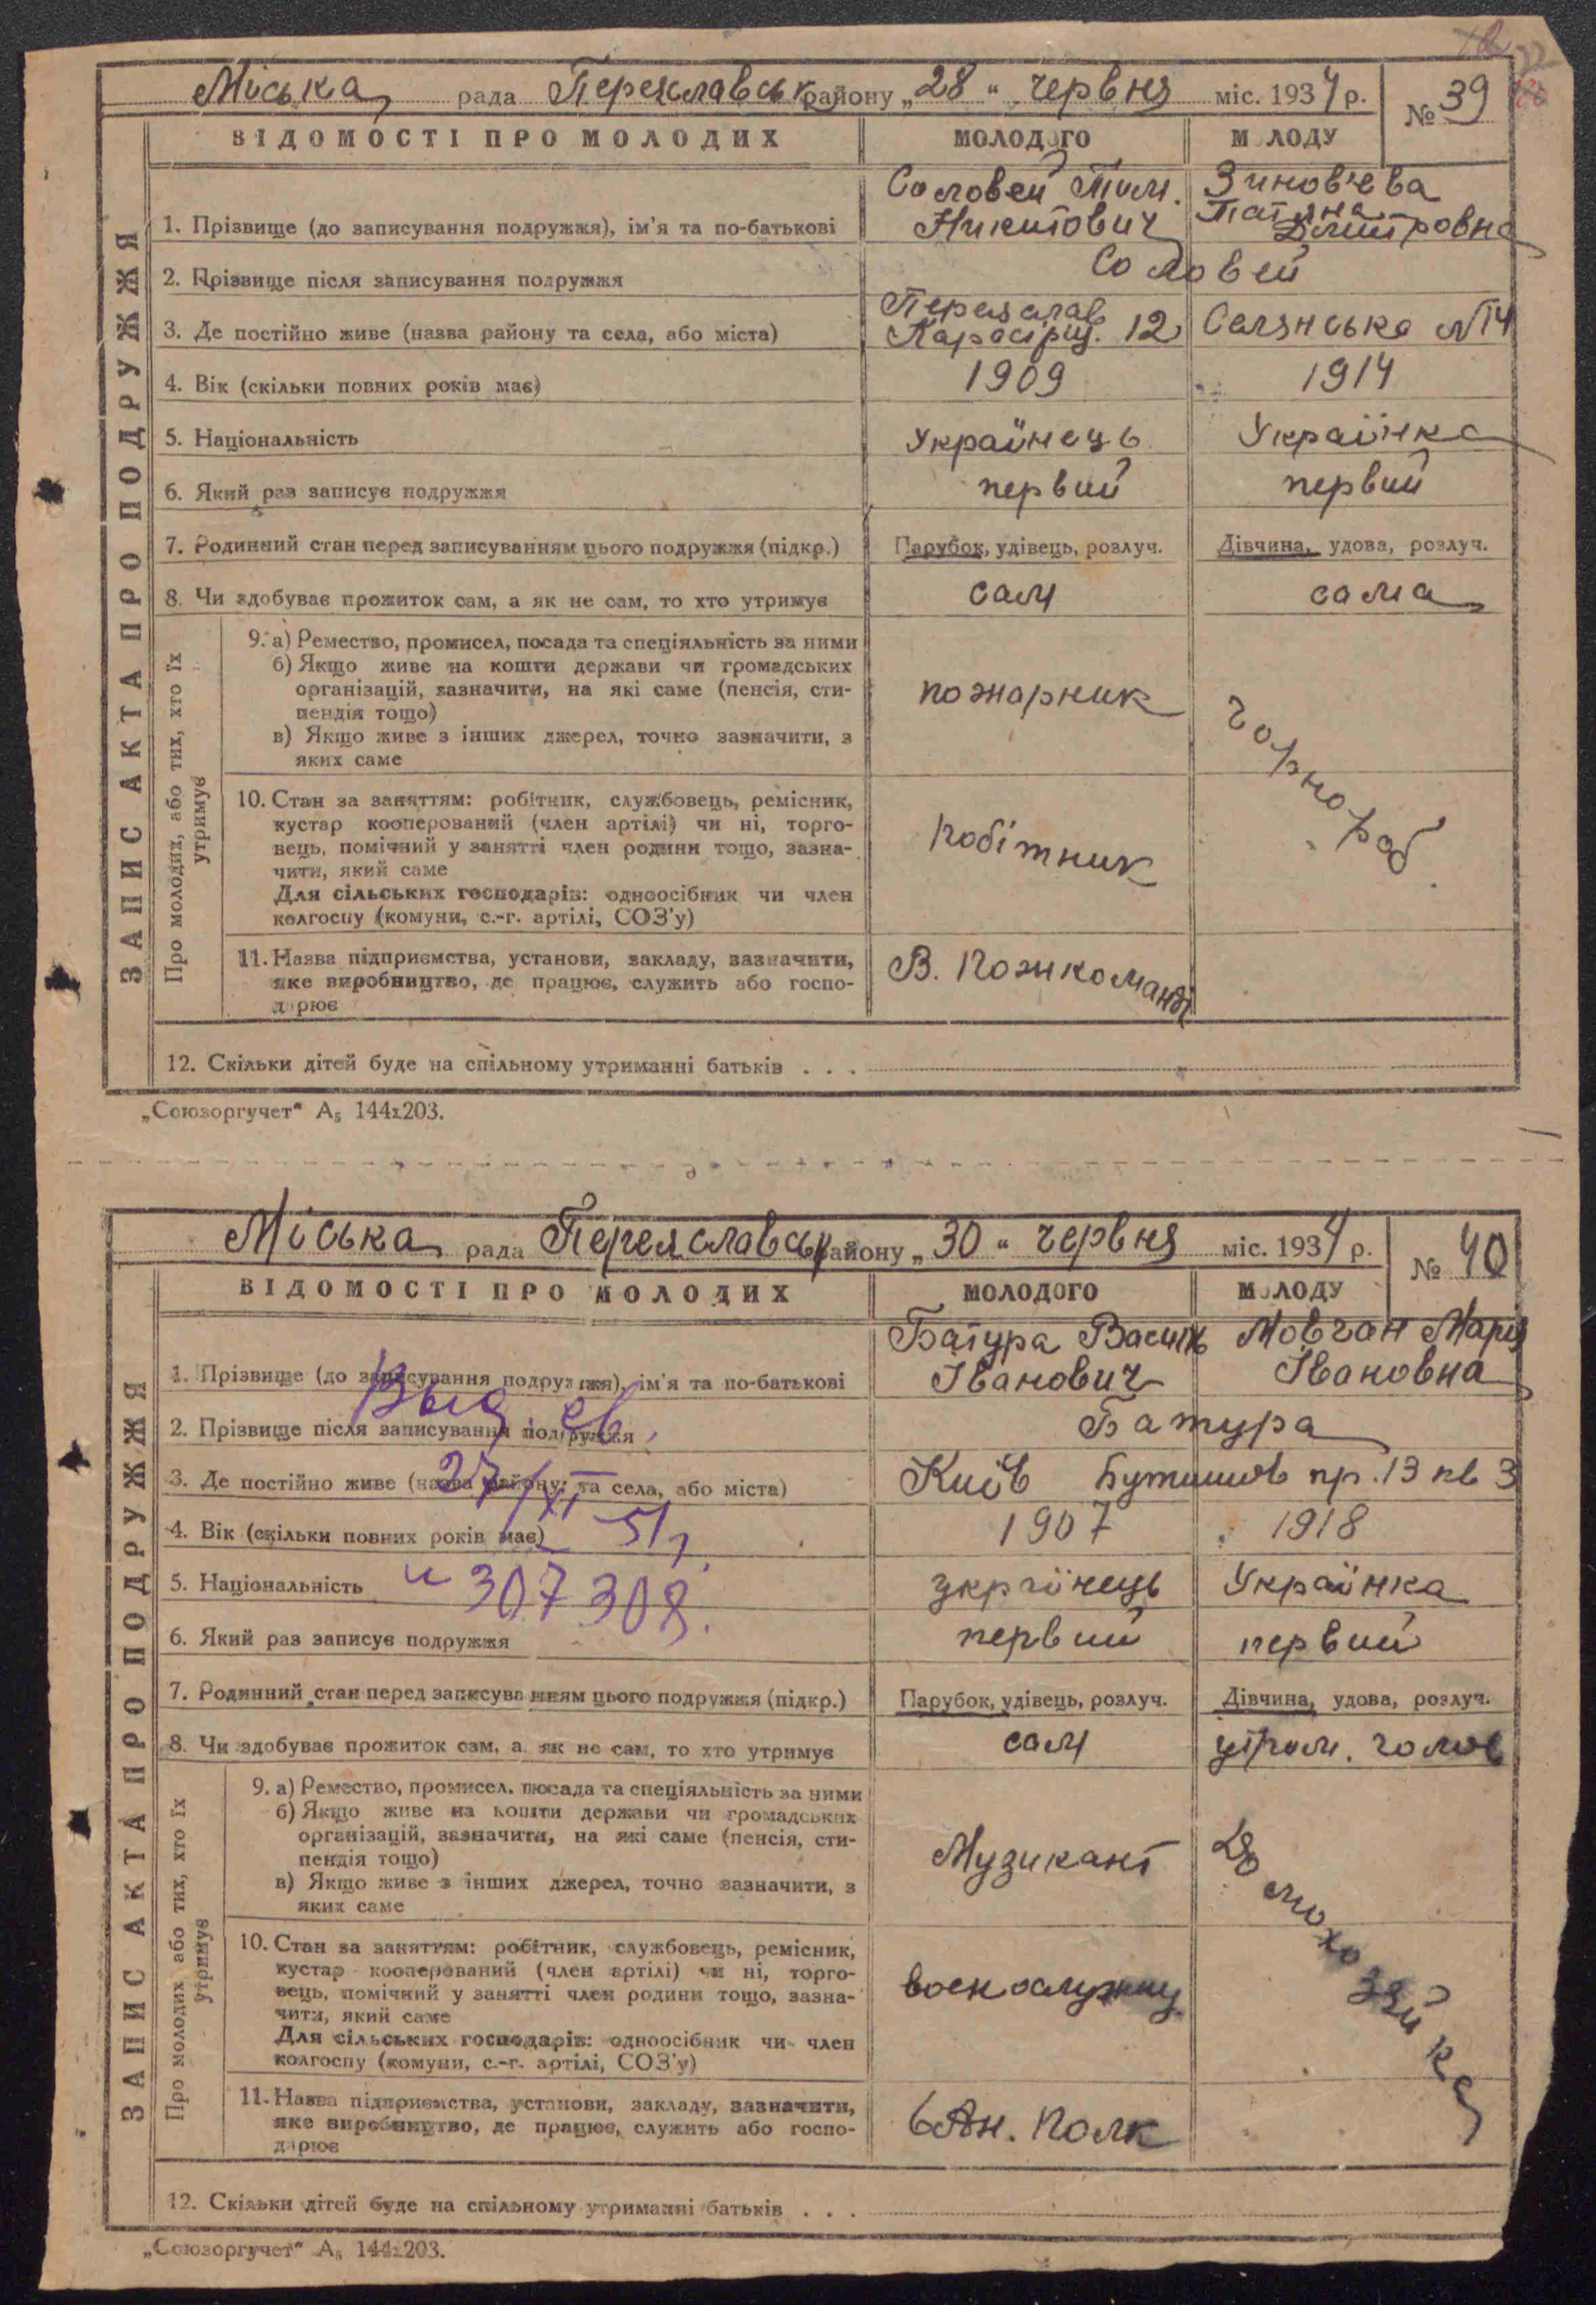 Міська рада Переяславськ району „28“ червня міс. 1934 р. № 39
ВІДОМОСТІ ПРО МОЛОДИХ
МОЛОДОГО
МОЛОДУ
ЗАПИС АКТА ПРО ПОДРУЖЖЯ
1. Прізвище (до записування подружжя), ім'я та по-батькові
Соловей Тим.
Никитович
Зиновʼєва
Татяна
Дмитровна
2. Прізвище після записування подружжя
Соловей
3. Де постійно живе (назва району та села, або міста)
Переяслав
12
Селянська №14
4. Вік (скільки повних років має)
1909
1914
5. Національність
Українець
Українка
6. Який раз записує подружжя
первий
первий
7. Родинний стан перед записуванням цього подружжя (підкр.)
Парубок, удівець, розлуч.
Дівчина, удова, розлуч.
8. Чи здобуває прожиток сам, а як не сам, то хто утримує
сам
сама
Про молодих, або тих, хто їх
утримує
9. а) Ремество, промисел, посада та спеціяльність за ними
б) Якщо живе на кошти держави чи громадських
організацій, зазначити, на які саме (пенсія, сти-
пендія тощо)
в) Якщо живе з інших джерел, точно зазначити, з
яких саме
пожарник
чорнороб.
10. Стан за заняттям: робітник, службовець, ремісник,
кустар кооперований (член артілі) чи ні, торго-
вець, помічний у занятті член родини тощо, зазна-
чити, який саме
Для сільських господарів: одноосібник чи член
колгоспу (комуни, с.-г. артілі, СОЗ'у)
робітник
11. Назва підприємства, установи, закладу, зазначити,
яке виробництво, де працює, служить або госпо-
дарює
В. Пожкоманді
12. Скільки дітей буде на спільному утриманні батьків . . .
„Союзоргучет“ А₅ 144х203.
Міська рада Переяславськ району „30“ червня міс. 1934 р. № 40
ВІДОМОСТІ ПРО МОЛОДИХ
МОЛОДОГО
МОЛОДУ
ЗАПИС АКТА ПРО ПОДРУЖЖЯ
1. Прізвище (до записування подружжя), ім'я та по-батькові
Батура Василь
Іванович
Мовчан Марія
Івановна
Выд. св.
2. Прізвище після записування подружжя
Батура
3. Де постійно живе (назва району та села, або міста)
27/XI 51 г.
Київ
пр. 13 кв 3
4. Вік (скільки повних років має)
1907
1918
5. Національність
и 307308.
українець
Українка
6. Який раз записує подружжя
первий
первий
7. Родинний стан перед записуванням цього подружжя (підкр.)
Парубок, удівець, розлуч.
Дівчина, удова, розлуч.
8. Чи здобуває прожиток сам, а як не сам, то хто утримує
сам
утрим. чолов
Про молодих або тих, хто їх
утримує
9. а) Ремество, промисел, посада та спеціяльність за ними
б) Якщо живе на кошти держави чи громадських
організацій, зазначити, на які саме (пенсія, сти-
пендія тощо)
в) Якщо живе з інших джерел, точно зазначити, з
яких саме
Музикант
домохозяйка
10. Стан за заняттям: робітник, службовець, ремісник,
кустар кооперований (член артілі) чи ні, торго-
вець, помічний у занятті член родини тощо, зазна-
чити, який саме
Для сільських господарів: одноосібник чи член
колгоспу (комуни, с.-г. артілі, СОЗ'у)
воєнослужащ
11. Назва підприємства, установи, закладу, зазначити,
яке виробництво, де працює, служить або госпо-
дарює
полк
12. Скільки дітей буде на спільному утриманні батьків . . .
„Союзоргучет“ А₅ 144х203.